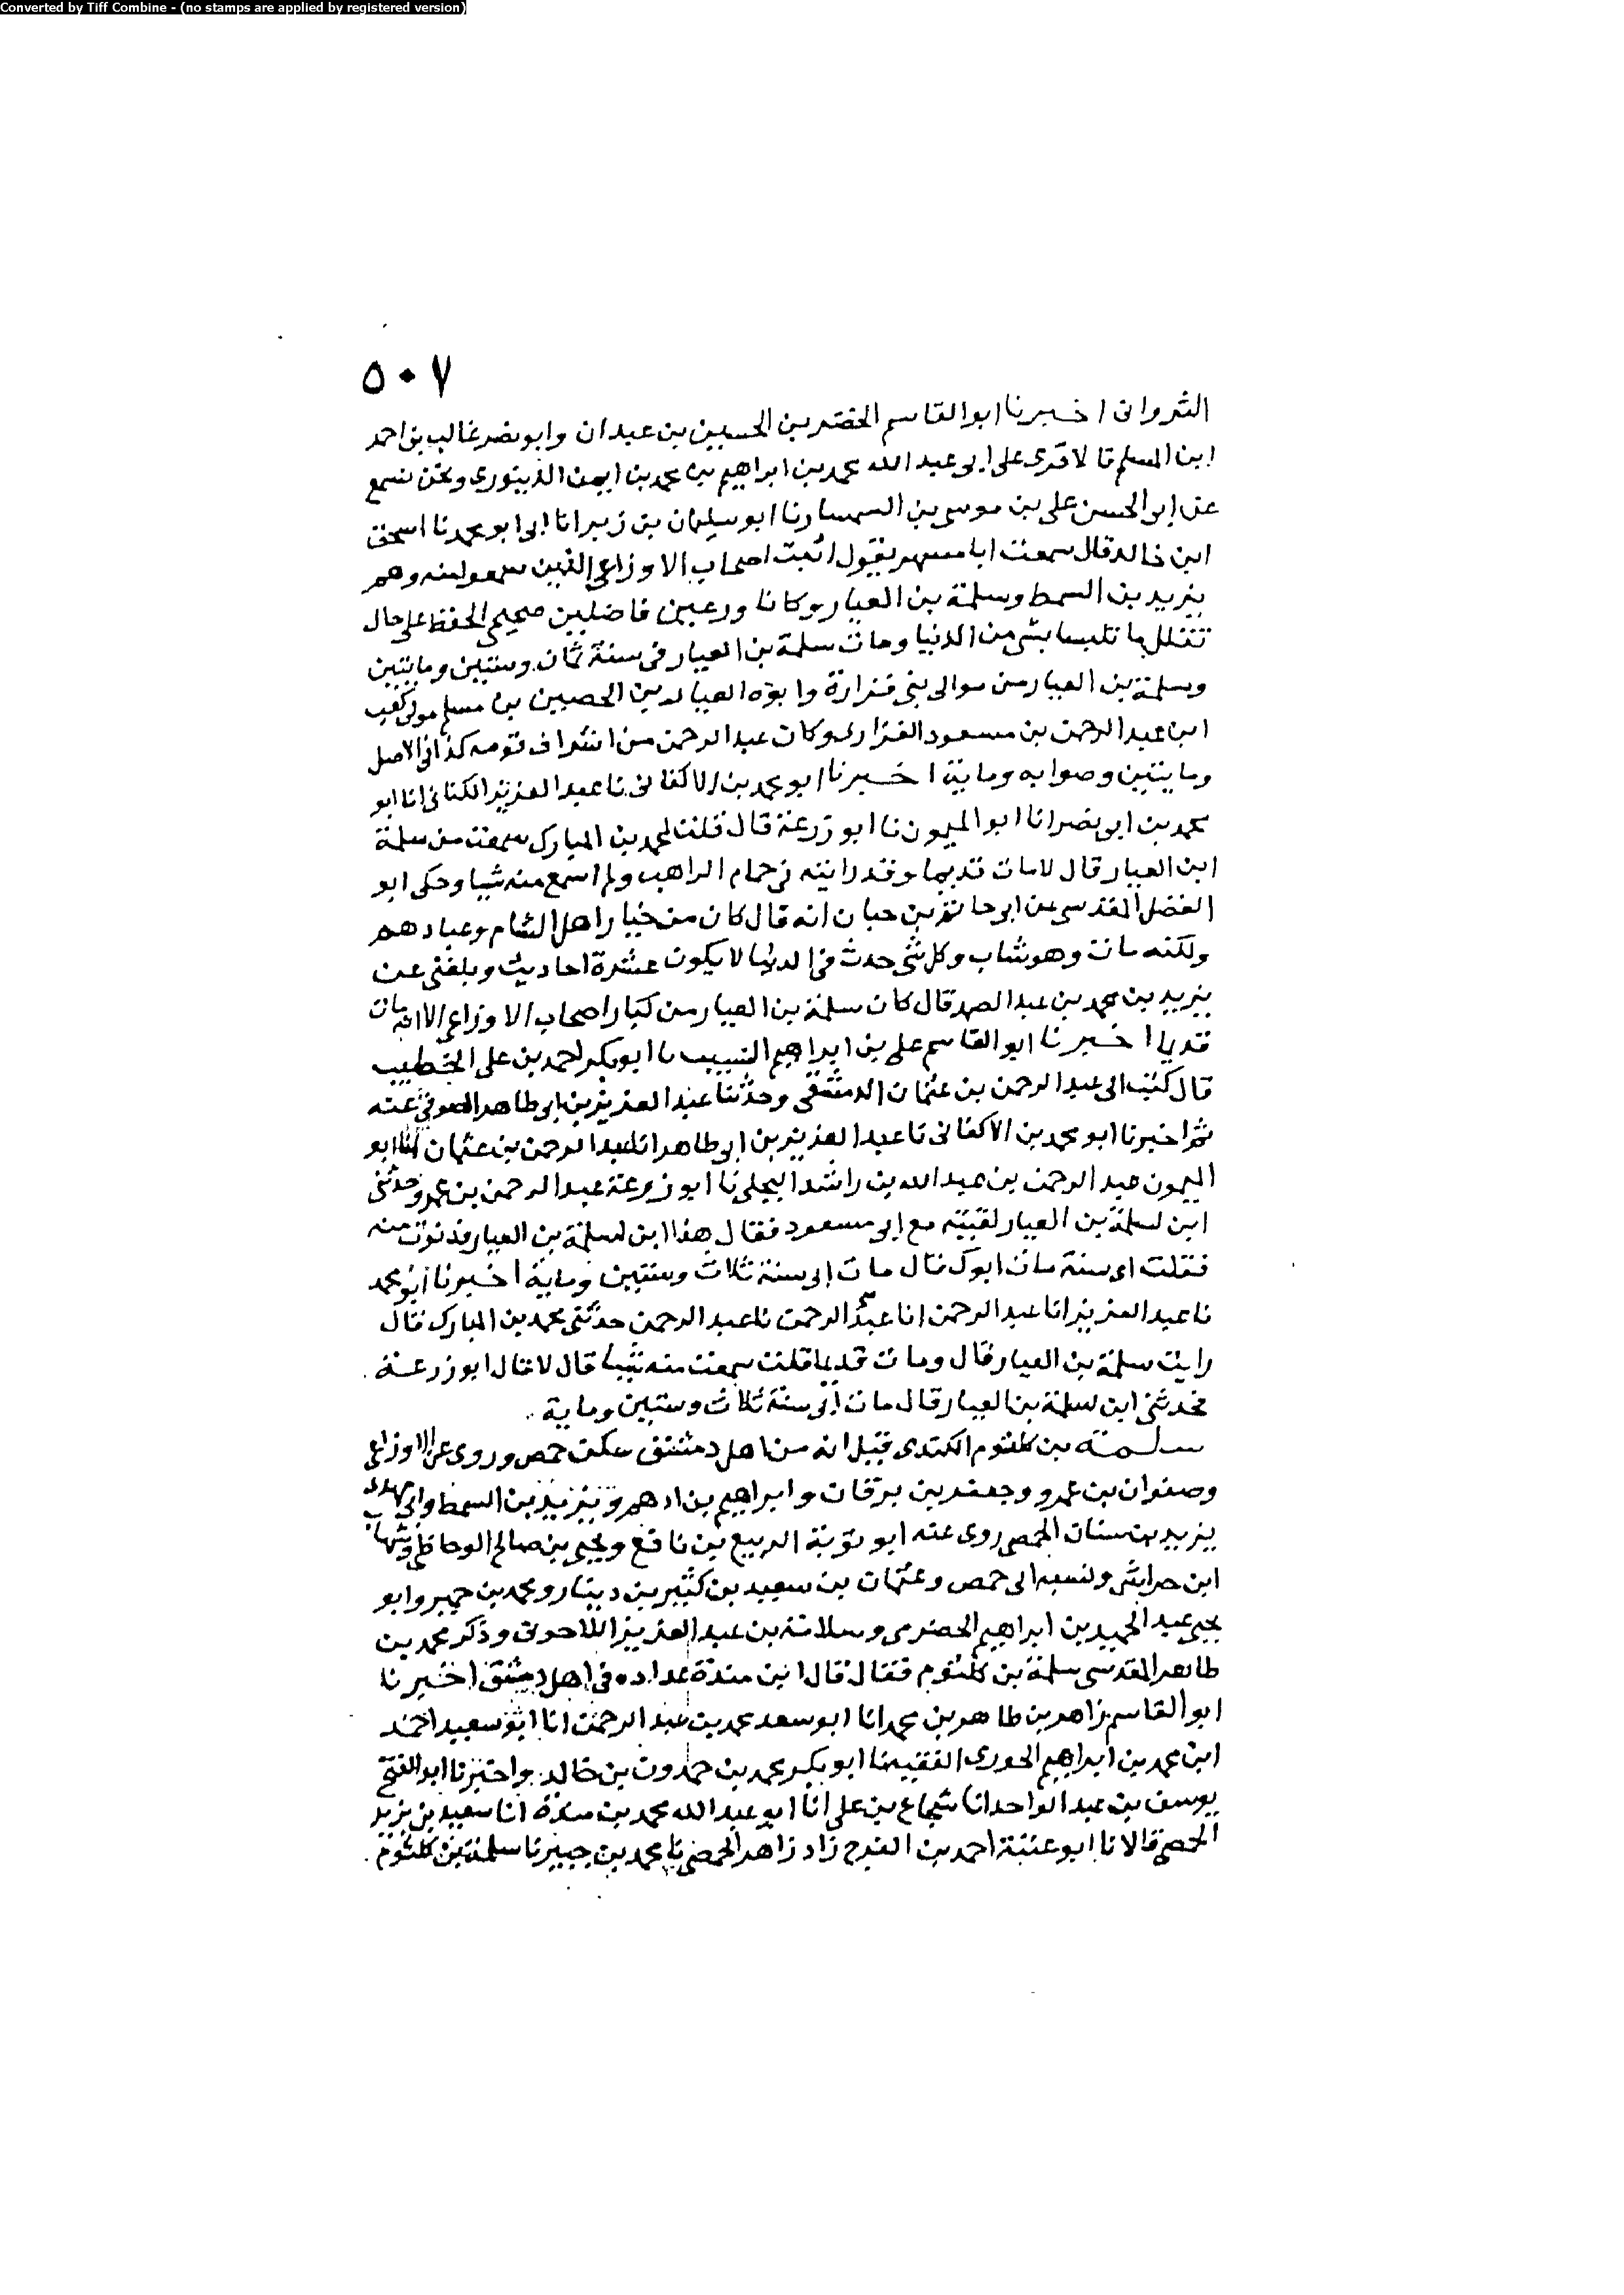 Converted by Tiff Combine - (no stamps are applied by registered version)
٥٠٧
الثروانى اخبرنا ابو القاسم الخضر بن الحسين بن عبدان وابو نصر غالب بن احمد
ابن المسلم قالا قرى على ابى عبد الله محمد بن ابراهيم بن محمد بن ايمن الدينورى ونحن نسمع
عن ابى الحسن على بن موسى بن السمسار نا ابو سليمان بن زبر انا ابى ابو محمد نا اسحق
ابن خالد قال سمعت ابا مسهر يقول اثبت اصحاب الاوزاعى الذين سمعوا منه وهم
يزيد بن السمط وسلمة بن العيار وكانا ورعين فاضلين صحيحى الحفظ على حال
تقلل ما تلبسا بشى من الدنيا ومات سلمة بن العيار فى سنة ثمان وستين ومايتين
وسلمة بن العيار من موالى بنى فزارة وابوه العيار بن الحصين بن مسلم مولى كعب
ابن عبد الرحمن بن مسعود الفزارى وكان عبد الرحمن من اشراف قومه كذا فى الاصل
ومايتين وصوابه وماية اخبرنا ابو محمد بن الاكفانى نا عبد العزيز الكتانى انا ابو
محمد بن ابى نصر انا ابو الميمون نا ابو زرعة قال قلت لمحمد بن المبارك سمعت من سلمة
ابن العيار قال لا مات قديما وقد رايته فى حمام الراهب ولم اسمع منه شيا وحكى ابو
الفضل المقدسى عن ابى حاتم بن حبان انه قال كان من خيار اهل الشام وعبادهم
ولكنه مات وهو شاب وكل شى حدث فى الدنيا لا يكون عشرة احاديث وبلغنى عن
يزيد بن محمد بن عبد الصمد قال كان سلمة بن العيار من كبار اصحاب الاوزاعى الا انه مات
قديما اخبرنا ابو القاسم على بن ابراهيم النسيب نا ابو بكر احمد بن على الخطيب
قال كتب الى عبد الرحمن بن عثمان الدمشقى وحدثنا عبد العزيز بن ابى طاهر الصوفى عنه
ثم اخبرنا ابو محمد بن الاكفانى نا عبد العزيز بن ابى طاهر انا عبد الرحمن بن عثمان انا ابو
الميمون عبد الرحمن بن عبد الله بن راشد البجلى نا ابو زرعة عبد الرحمن بن عمرو حدثنى
ابن لسلمة بن العيار لقيته مع ابى مسعود فقال هذا ابن لسلمة بن العيار فدنوت منه
فقلت اى سنة مات ابوك قال مات ابى سنة ثلاث وستين وماية اخبرنا ابو محمد
نا عبد العزيز انا عبد الرحمن انا عبد الرحمن نا عبد الرحمن حدثنى محمد بن المبارك قال
رايت سلمة بن العيار قال ومات قديما قلت سمعت منه شيا قال لا قال ابو زرعة .
فحدثنى ابن لسلمة بن العيار قال مات ابى سنة ثلاث وستين وماية ..
سلمة بن كلثوم الكندى قيل انه من اهل دمشق سكن حمص وروى عن الاوزاعى
وصفوان بن عمرو وجعفر بن برقان وابراهيم بن ادهم ويزيد بن السمط وابى
يزيد بن سنان الحمصى روى عنه ابو توبة الربيع بن نافع ويحيى بن صالح الوحاظى وشهاب
ابن خراش ونسبه الى حمص وعثمان بن سعيد بن كثير بن دينار ومحمد بن حمير وابو
يحيى عبد الحميد بن ابراهيم الحضرمى وسلامة بن عبد العزيز اللاحونى وذكر محمد بن
طاهر المقدسى سلمة بن كلثوم فقال قال ابن مندة عداده فى اهل دمشق اخبرنا
ابو القاسم زاهر بن طاهر بن محمد انا ابو سعد محمد بن عبد الرحمن انا ابو سعيد احمد
ابن محمد بن ابراهيم الحورى الفقيه انا ابو بكر محمد بن حمدون بن خالد واخبرنا ابو الفتح
يوسف بن عبد الواحد انا شجاع بن على انا ابو عبد الله محمد بن مندة انا سعيد بن يزيد
الحمصى قالا نا ابو عتبة احمد بن الفرج زاد زاهر الحمصى نا محمد بن حمير نا سلمة بن كلثوم .